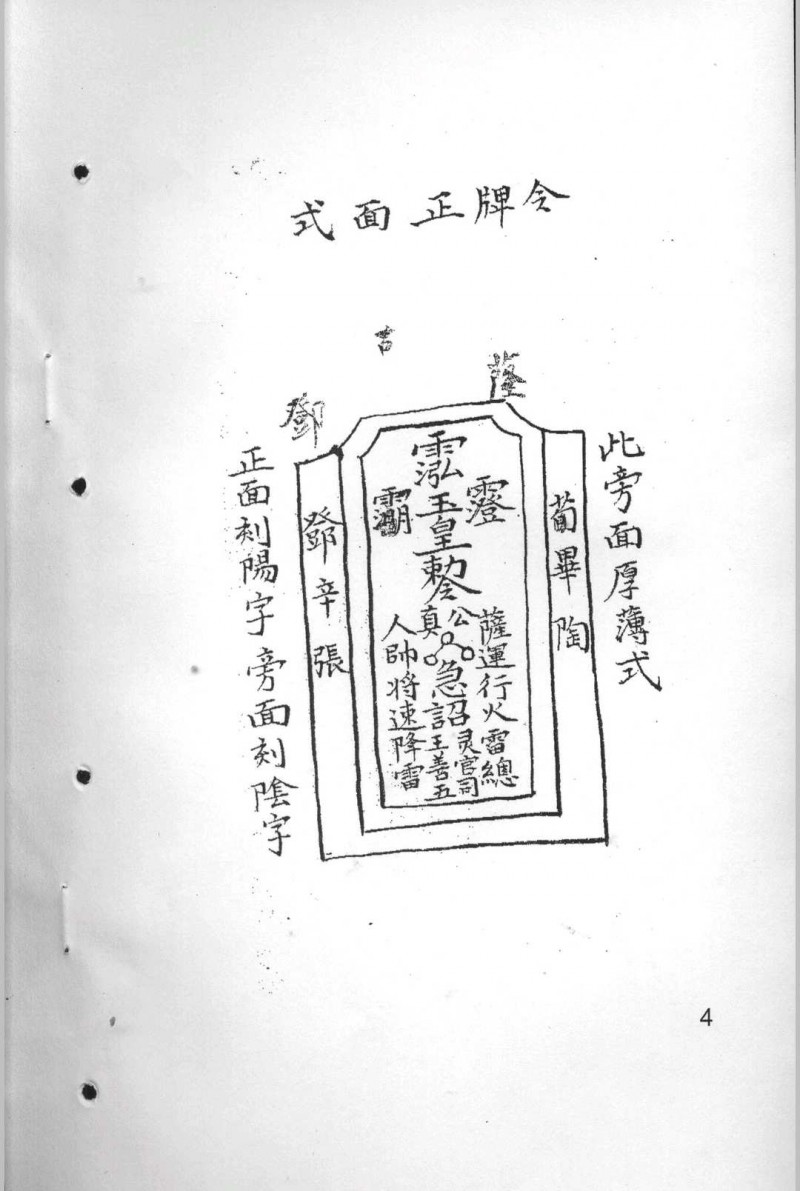 令牌正面式
吉
薩
鄧
此旁面厚薄式
荀畢陶
玉皇勅令
公
真
薩運行火雷總
召灵官司
急
詔王善五
人帥将速降雷
鄧辛張
正面刻陽字旁面刻陰字
4